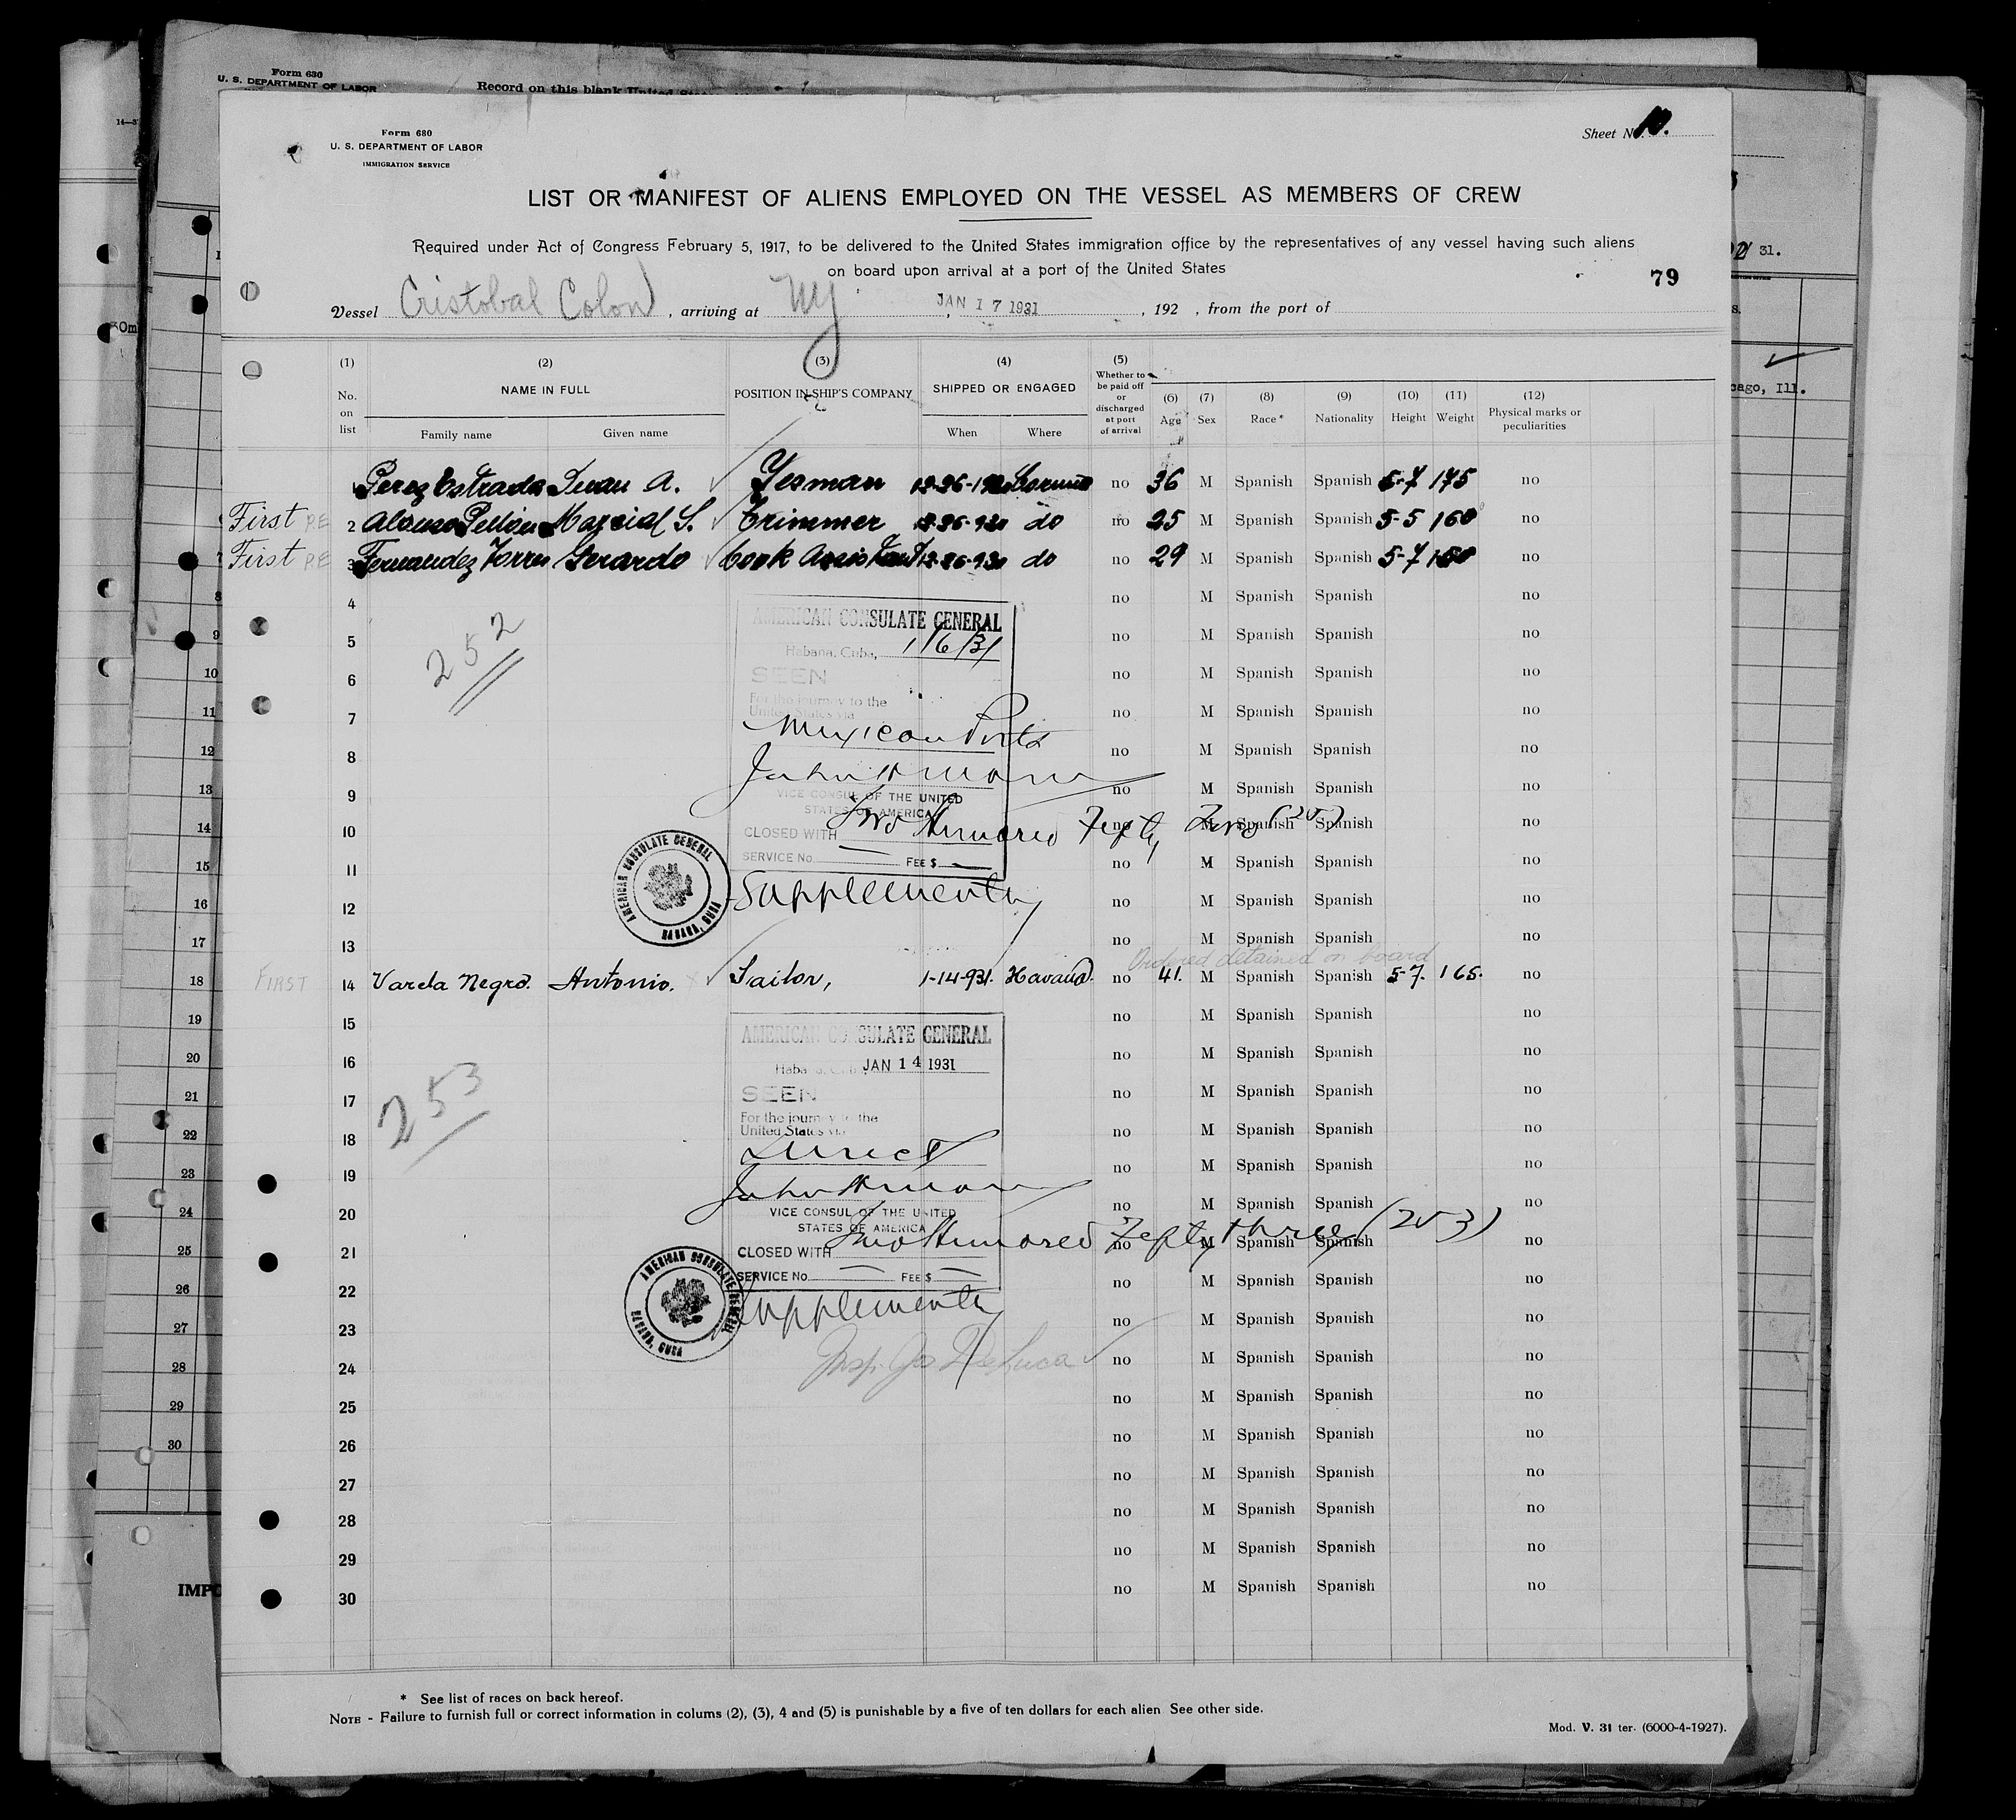 Form 630
U. S. DEPARTMENT OF LABOR
Record on this blank United
Form 680
U. S. DEPARTMENT OF LABOR
IMMIGRATION SERVICE
Sheet No. 10.
LIST OR MANIFEST OF ALIENS EMPLOYED ON THE VESSEL AS MEMBERS OF CREW
Required under Act of Congress February 5, 1917, to be delivered to the United States immigration office by the representatives of any vessel having such aliens
on board upon arrival at a port of the United States
79
31.
Vessel Cristobal Colon, arriving at NY, JAN 17 1931, 192 , from the port of
(1) No. on list
(2) NAME IN FULL
Family name Given name
(3) POSITION IN SHIP'S COMPANY
(4) SHIPPED OR ENGAGED
When Where
(5) Whether to be paid off or discharged at port of arrival
(6) Age
(7) Sex
(8) Race*
(9) Nationality
(10) Height
(11) Weight
(12) Physical marks or peculiarities
cago, Ill.
Perez Estrada Juan A. Yesman Coruña no 36 M Spanish Spanish 5-7 175 no
First 2 Alonso Marcial S. Trimmer do no 25 M Spanish Spanish 5-5 160 no
First 3 Fernandez Torres Gerardo Cook Assistant do no 29 M Spanish Spanish 5-7 no
4 no M Spanish Spanish no
5 no M Spanish Spanish no
6 no M Spanish Spanish no
7 no M Spanish Spanish no
8 no M Spanish Spanish no
9 no M Spanish Spanish no
10 no M Spanish Spanish no
11 no M Spanish Spanish no
12 no M Spanish Spanish no
13 no M Spanish Spanish no
252
AMERICAN CONSULATE GENERAL
Habana, Cuba, 1/6/31
SEEN
For the journey to the
United States via
Mexican Ports
VICE CONSUL OF THE UNITED
STATES OF AMERICA
CLOSED WITH Two Hundred Fifty Two (252)
SERVICE No. FEE $
Supplementy
AMERICAN CONSULATE GENERAL
HABANA, CUBA
Ordered detained on board
FIRST 14 Varela Negro. Antonio. Sailor, 1-14-931. Havana. no 41. M Spanish Spanish 5-7. 165. no
15 no M Spanish Spanish no
16 no M Spanish Spanish no
17 no M Spanish Spanish no
18 no M Spanish Spanish no
19 no M Spanish Spanish no
20 no M Spanish Spanish no
21 no M Spanish Spanish no
22 no M Spanish Spanish no
23 no M Spanish Spanish no
24 no M Spanish Spanish no
25 no M Spanish Spanish no
26 no M Spanish Spanish no
27 no M Spanish Spanish no
28 no M Spanish Spanish no
29 no M Spanish Spanish no
30 no M Spanish Spanish no
253
AMERICAN CONSULATE GENERAL
Habana, Cuba, JAN 14 1931
SEEN
For the journey to the
United States via
Direct
VICE CONSUL OF THE UNITED
STATES OF AMERICA
CLOSED WITH Two Hundred Fifty three (253)
SERVICE No. FEE $
Supplementy
AMERICAN CONSULATE GENERAL
HABANA, CUBA
Insp. Jos DeLuca
IMPO
* See list of races on back hereof.
NOTE - Failure to furnish full or correct information in colums (2), (3), 4 and (5) is punishable by a five of ten dollars for each alien See other side.
Mod. V. 31 ter. (6000-4-1927).